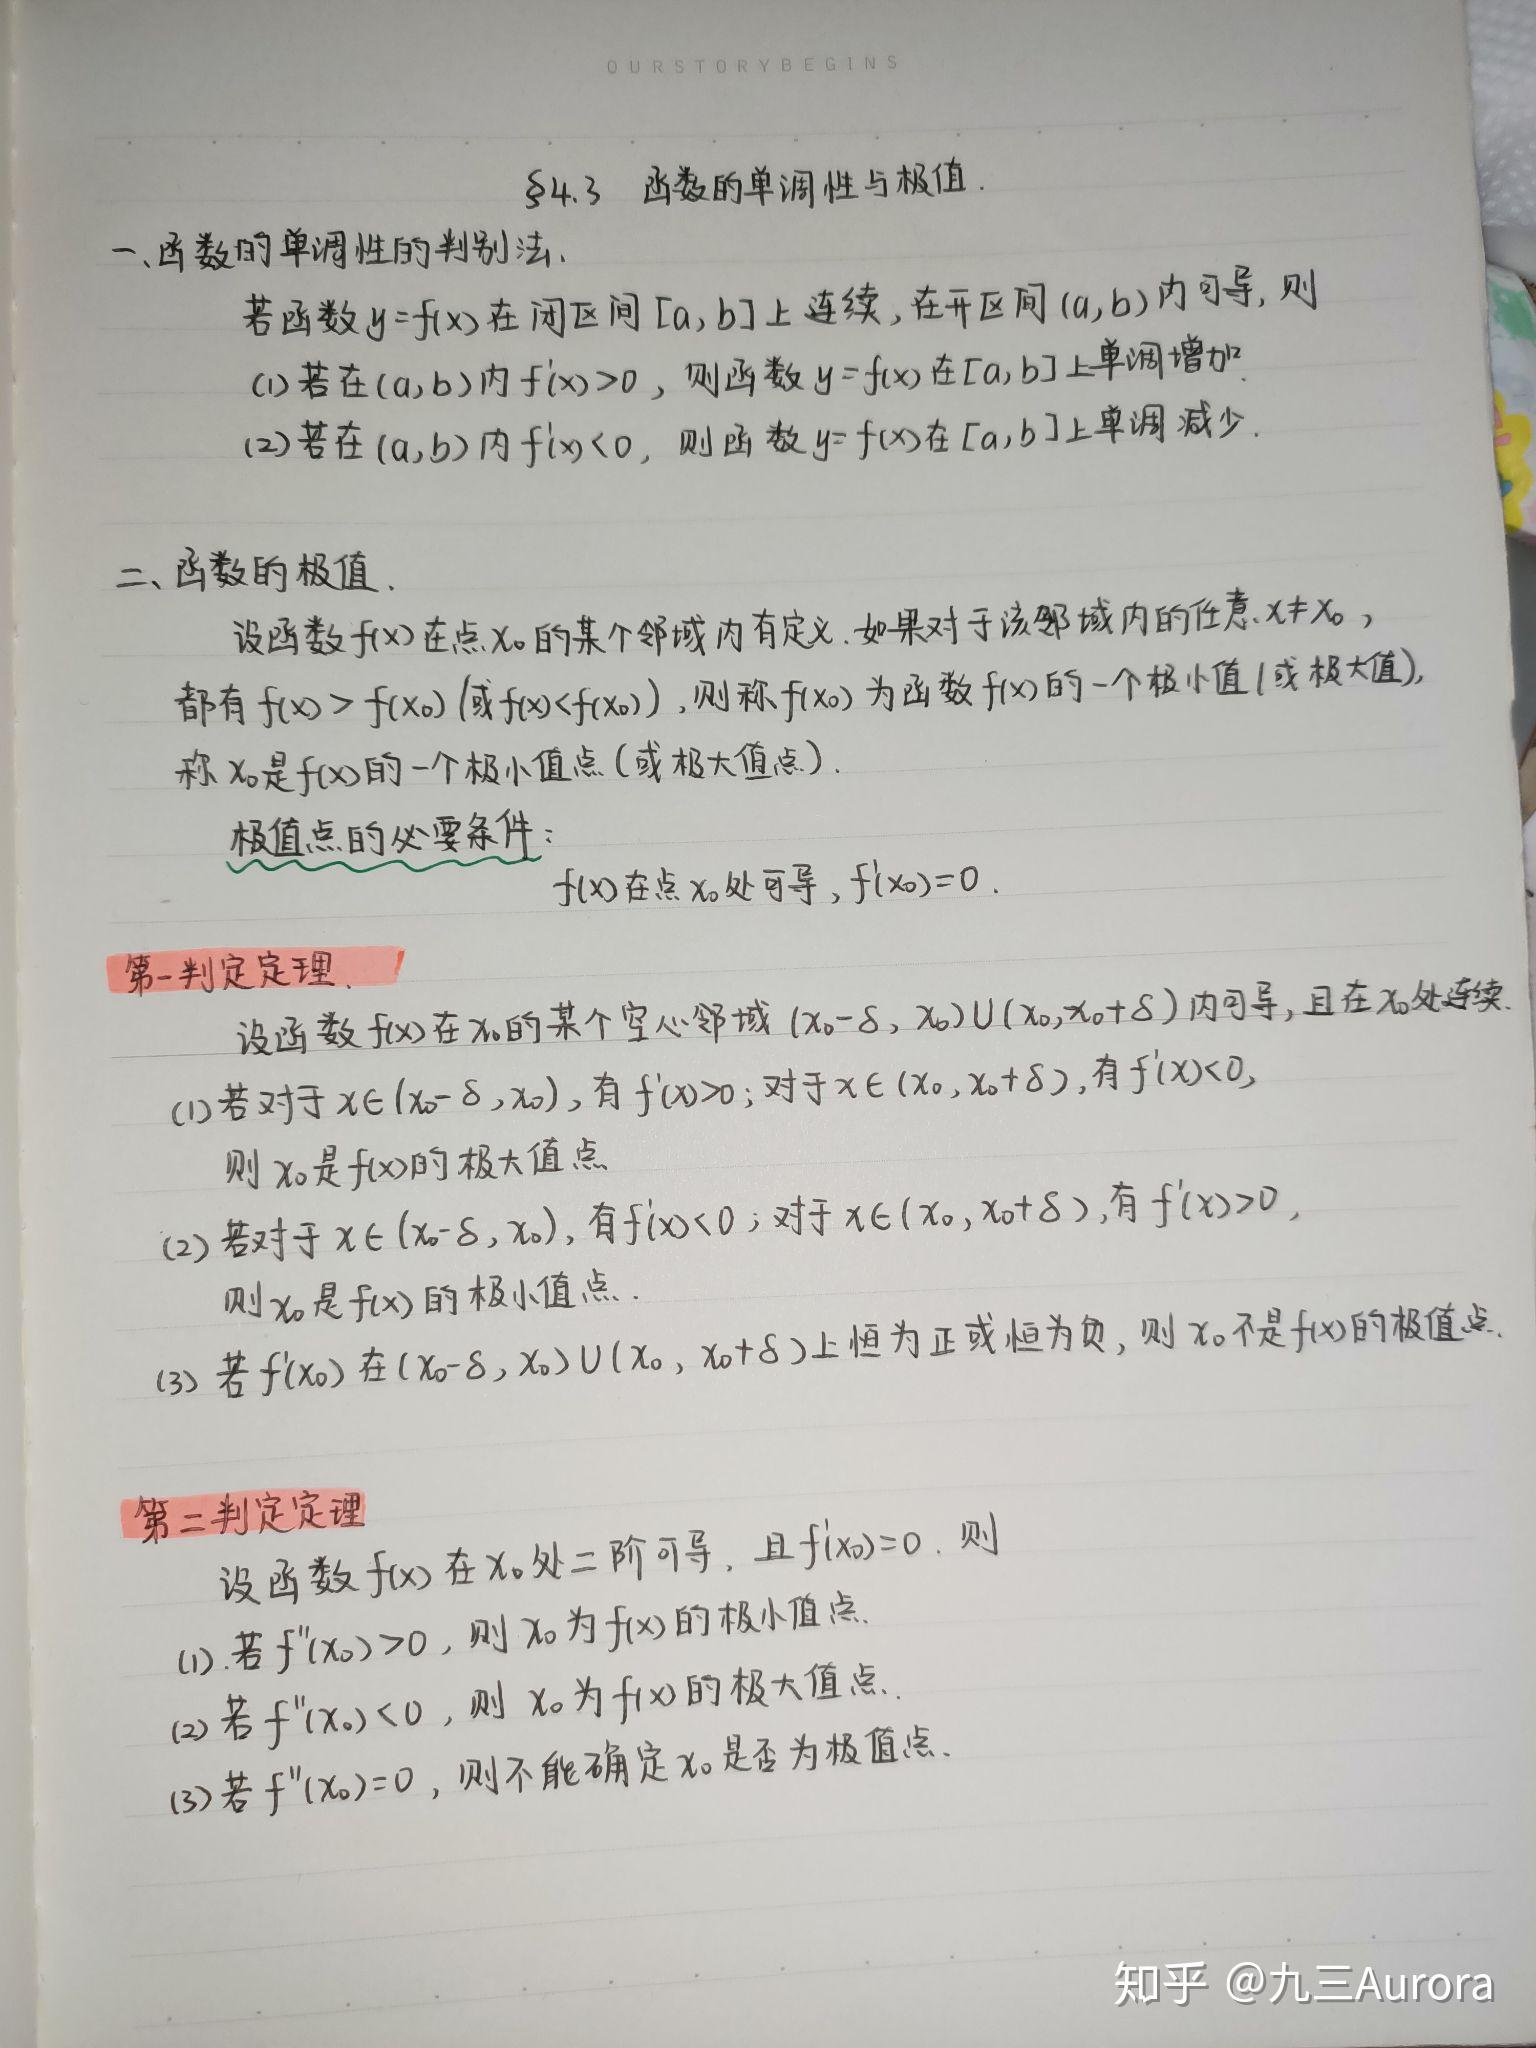 OURSTORYBEGINS
§4.3 函数的单调性与极值.
一、函数的单调性的判别法.
若函数y=f(x)在闭区间[a,b]上连续,在开区间(a,b)内可导,则
(1)若在(a,b)内f'(x)>0,则函数y=f(x)在[a,b]上单调增加.
(2)若在(a,b)内f'(x)<0,则函数y=f(x)在[a,b]上单调减少.
二、函数的极值.
设函数f(x)在点x₀的某个邻域内有定义.如果对于该邻域内的任意x≠x₀,
都有f(x)>f(x₀)(或f(x)<f(x₀)),则称f(x₀)为函数f(x)的一个极小值(或极大值),
称x₀是f(x)的一个极小值点(或极大值点).
极值点的必要条件:
f(x)在点x₀处可导,f'(x₀)=0.
第一判定定理.
设函数f(x)在x₀的某个空心邻域(x₀-δ,x₀)∪(x₀,x₀+δ)内可导,且在x₀处连续.
(1)若对于x∈(x₀-δ,x₀),有f'(x)>0;对于x∈(x₀,x₀+δ),有f'(x)<0,
则x₀是f(x)的极大值点
(2)若对于x∈(x₀-δ,x₀),有f'(x)<0;对于x∈(x₀,x₀+δ),有f'(x)>0,
则x₀是f(x)的极小值点.
(3)若f'(x₀)在(x₀-δ,x₀)∪(x₀,x₀+δ)上恒为正或恒为负,则x₀不是f(x)的极值点.
第二判定定理
设函数f(x)在x₀处二阶可导,且f'(x₀)=0.则
(1).若f''(x₀)>0,则x₀为f(x)的极小值点.
(2)若f''(x₀)<0,则x₀为f(x)的极大值点.
(3)若f''(x₀)=0,则不能确定x₀是否为极值点.
知乎 @九三Aurora